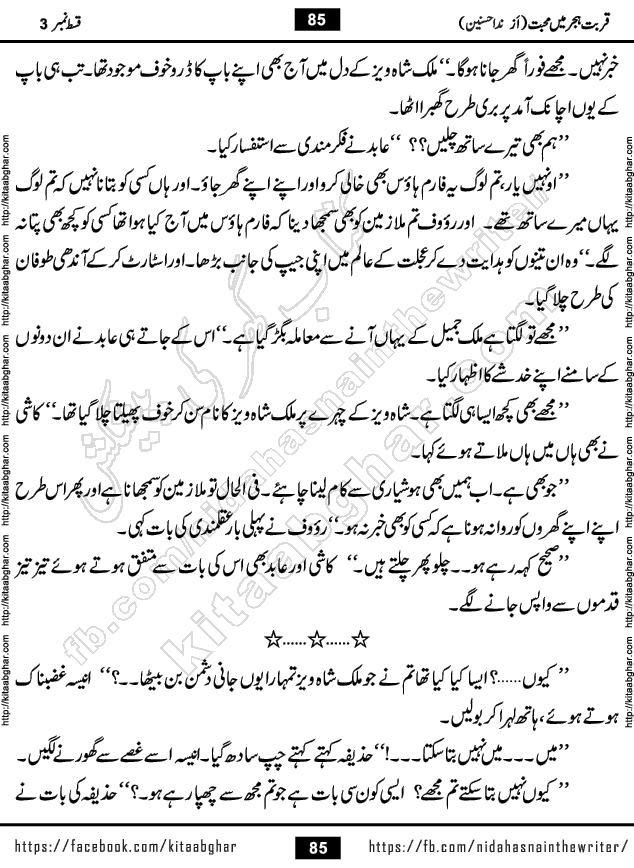 قربت ہجر میں محبت (از ندا حسنین)
85
قسط نمبر 3
خبر نہیں۔ مجھے فوراً گھر جانا ہوگا۔‘‘ ملک شاہ ویز کے دل میں آج بھی اپنے باپ کا ڈر و خوف موجود تھا۔ تب ہی باپ
کے یوں اچانک آمد پر بری طرح گھبرا اٹھا۔
’’ہم بھی تیرے ساتھ چلیں؟؟ ‘‘ عابد نے فکرمندی سے استفسار کیا۔
’’او نہیں یار، تم لوگ یہ فارم ہاؤس بھی خالی کرو اور اپنے اپنے گھر جاؤ۔ اور ہاں کسی کو بتانا نہیں کہ تم لوگ
یہاں میرے ساتھ تھے۔ اور رؤوف تم ملازمین کو بھی سمجھا دینا کہ فارم ہاؤس میں آج کیا ہوا تھا کسی کو کچھ بھی پتا نہ
لگے۔‘‘ وہ ان تینوں کو ہدایت دے کر عجلت کے عالم میں اپنی جیپ کی جانب بڑھا۔ اور اسٹارٹ کر کے آندھی طوفان
کی طرح چلا گیا۔
’’مجھے تو لگتا ہے ملک جمیل کے یہاں آنے سے معاملہ بگڑ گیا ہے۔‘‘ اس کے جاتے ہی عابد نے ان دونوں
کے سامنے اپنے خدشے کا اظہار کیا۔
’’مجھے بھی کچھ ایسا ہی لگتا ہے۔ شاہ ویز کے چہرے پر ملک شاہ ویز کا نام سن کر خوف پھیلتا چلا گیا تھا۔‘‘ کاشی
نے بھی ہاں میں ہاں ملاتے ہوئے کہا۔
’’جو بھی ہے۔ اب ہمیں بھی ہوشیاری سے کام لینا چاہئے۔ فی الحال تو ملازمین کو سمجھانا ہے اور پھر اس طرح
اپنے اپنے گھروں کو روانہ ہونا ہے کہ کسی کو بھی خبر نہ ہو۔‘‘ رؤوف نے پہلی بار عقلمندی کی بات کہی۔
’’صحیح کہہ رہے ہو۔۔ چلو پھر چلتے ہیں۔‘‘ کاشی اور عابد بھی اس کی بات سے متفق ہوتے ہوئے تیز تیز
قدموں سے واپس جانے لگے۔
☆......☆......☆
’’ کیوں......؟ ایسا کیا کیا تھا تم نے جو ملک شاہ ویز تمہارا یوں جانی دشمن بن بیٹھا۔۔؟‘‘ انیسہ غضبناک
ہوتے ہوئے، ہاتھ لہرا کر بولیں۔
’’میں۔۔۔ میں نہیں بتا سکتا۔۔۔!‘‘ حذیفہ کہتے کہتے چپ سادھ گیا۔ انیسہ اسے غصے سے گھورنے لگیں۔
’’کیوں نہیں بتا سکتے تم مجھے؟ ایسی کون سی بات ہے جو تم مجھ سے چھپا رہے ہو۔؟‘‘ حذیفہ کی بات نے
http://kitaabghar.com http://kitaabghar.com http://kitaabghar.com http://kitaabghar.com http://kitaabghar.com http://kitaabghar.com
http://kitaabghar.com http://kitaabghar.com http://kitaabghar.com http://kitaabghar.com http://kitaabghar.com http://kitaabghar.com
کتاب گھر کی پیشکش
fb.com/nidahasnainthewriter/
kitaabghar.com
https://facebook.com/kitaabghar
85
https://fb.com/nidahasnainthewriter/